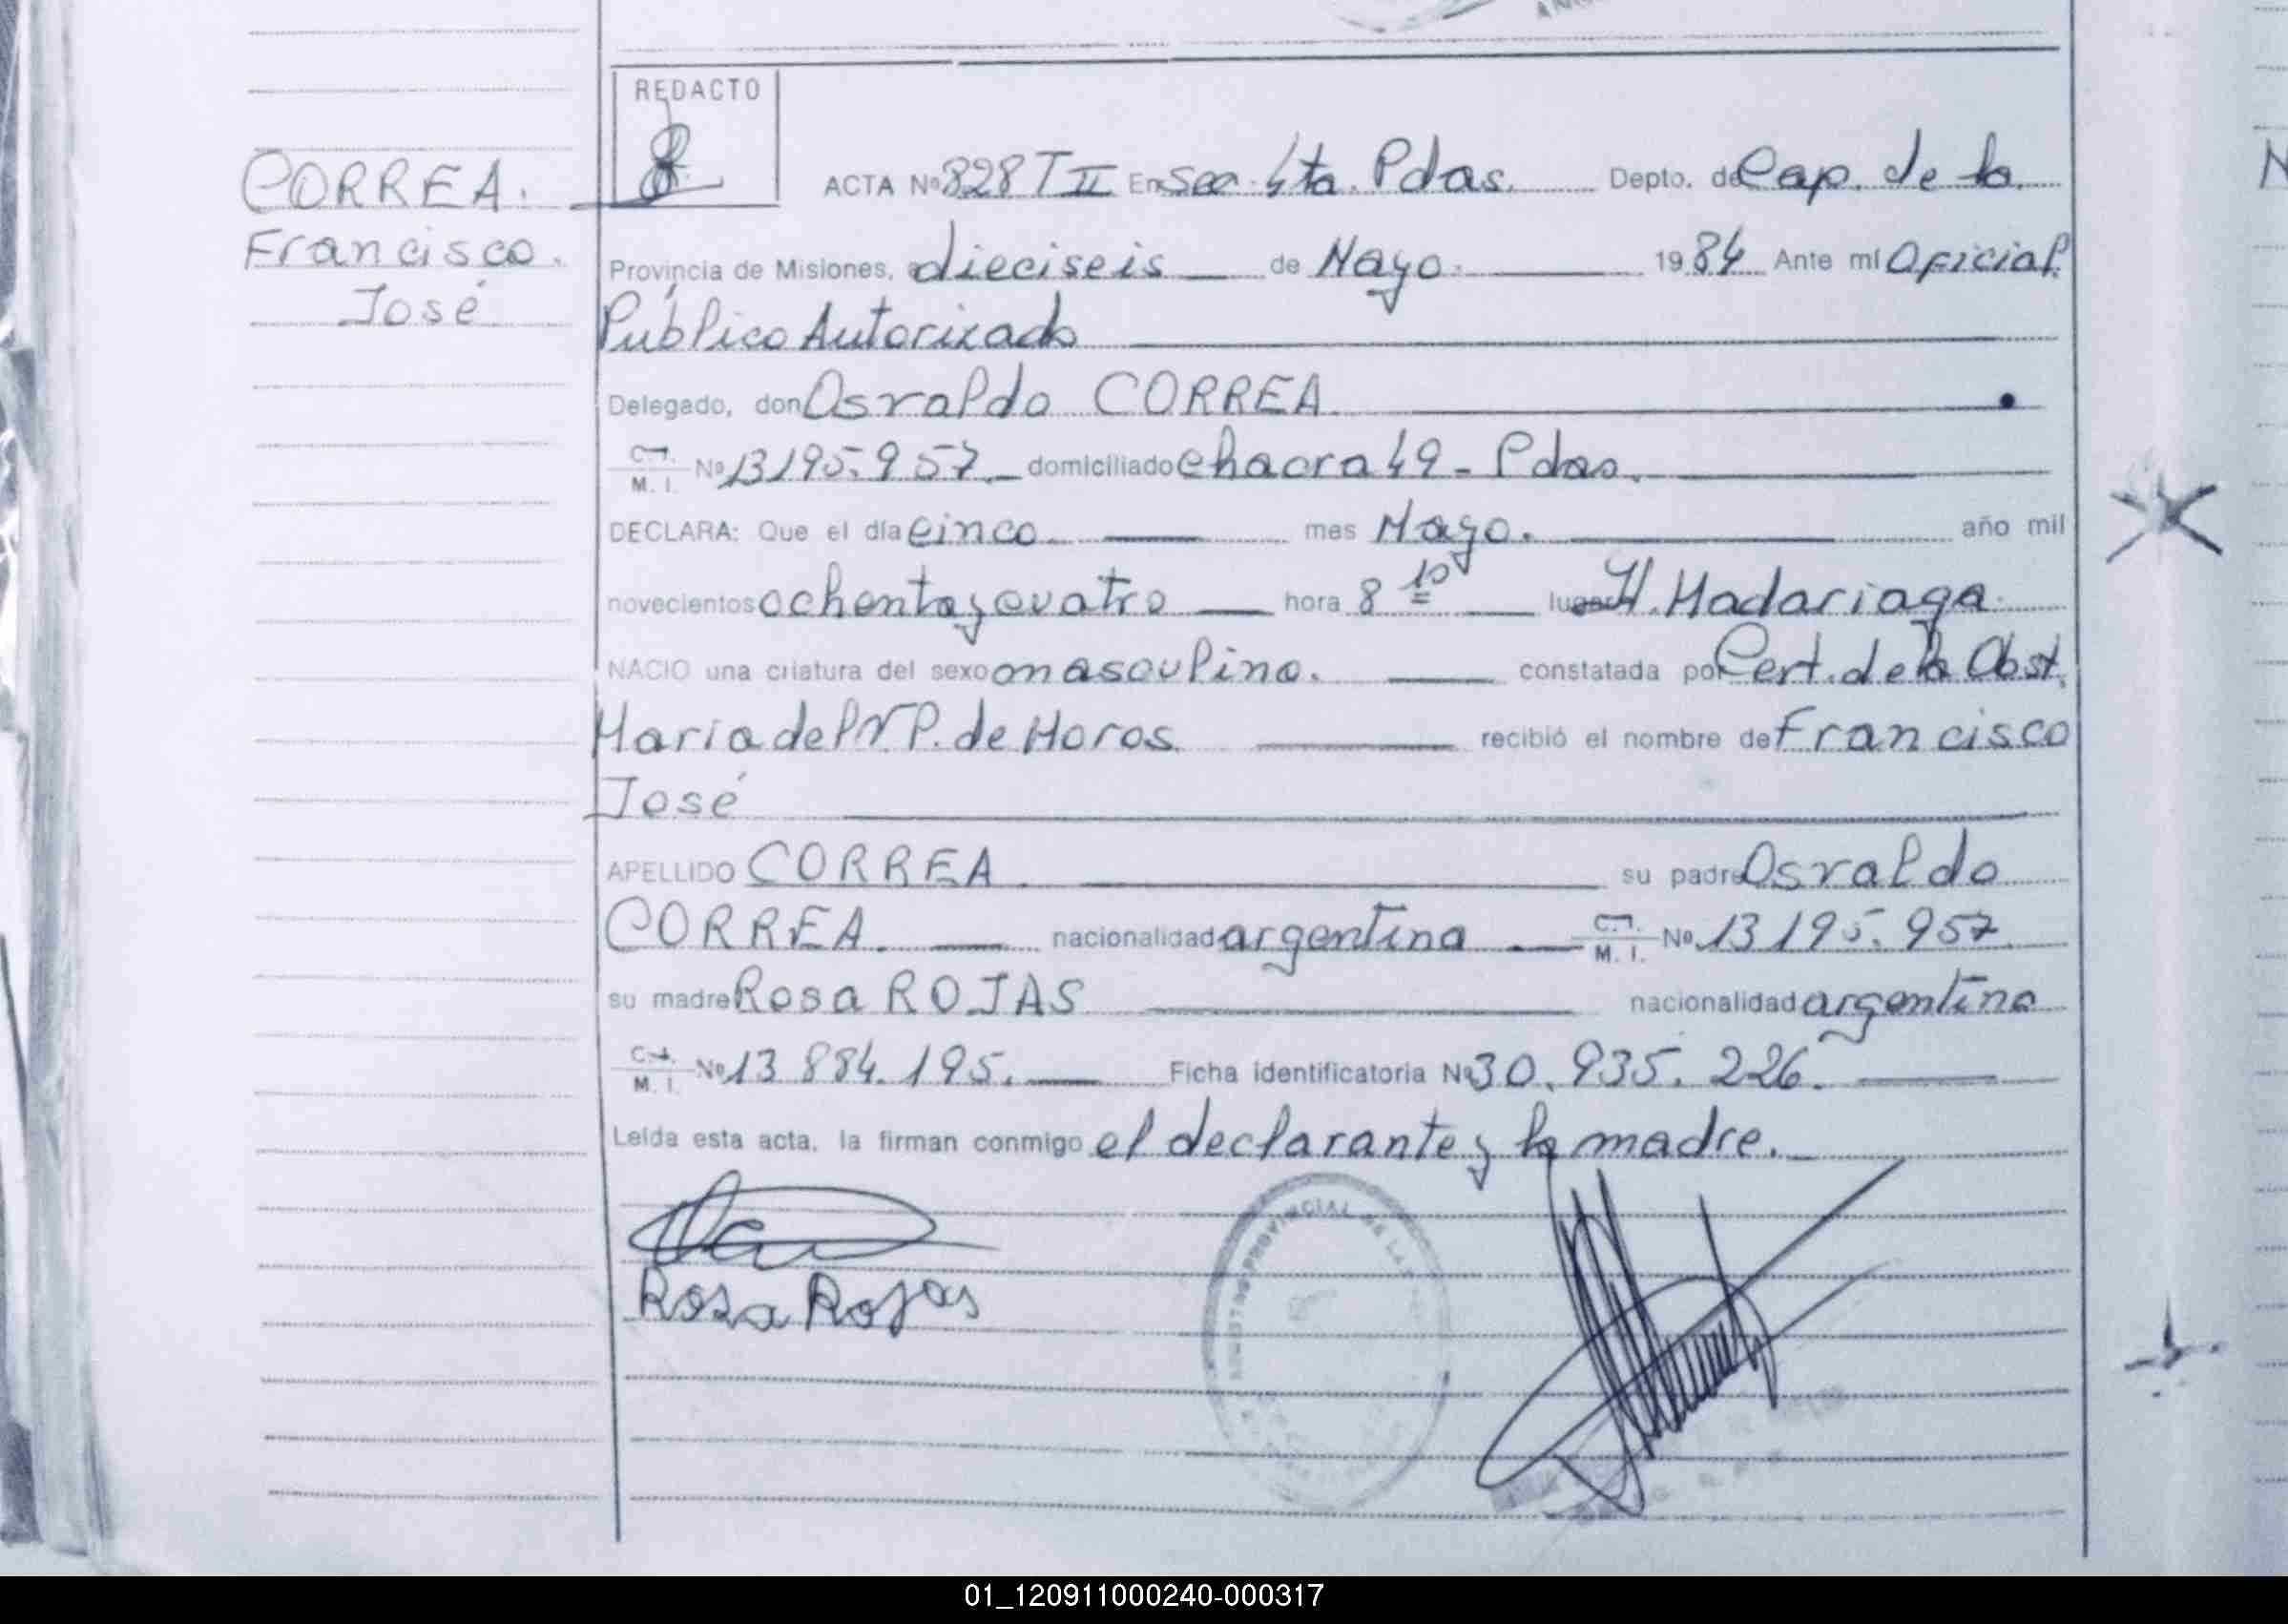 REDACTO
CORREA.
Francisco.
José
ACTA Nº 828 T II En Sec. 4ta. Pdas. Depto. de Cap. de la
Provincia de Misiones, a dieciseis de Mayo. 1984 Ante mí Oficial
Público Autorizado
Delegado, don Osvaldo CORREA.
C.I. M. I. Nº 13195.957. domiciliado chacra 49 - Pdas.
DECLARA: Que el día cinco mes Mayo. año mil
novecientos ochenta y cuatro hora 8 10 lugar H. Madariaga
NACIO una criatura del sexo masculino. constatada por Cert. de la Obst.
María del V. P. de Moros recibió el nombre de Francisco
José
APELLIDO CORREA su padre Osvaldo
CORREA. nacionalidad argentina C.I. M. I. Nº 13195.957
su madre Rosa ROJAS nacionalidad argentina
C.I. M. I. Nº 13 884.195. Ficha identificatoria Nº 30.935.226.
Leída esta acta, la firman conmigo el declarante y la madre.
Rosa Rojas
PROVINCIAL DE LAS
01_120911000240-000317